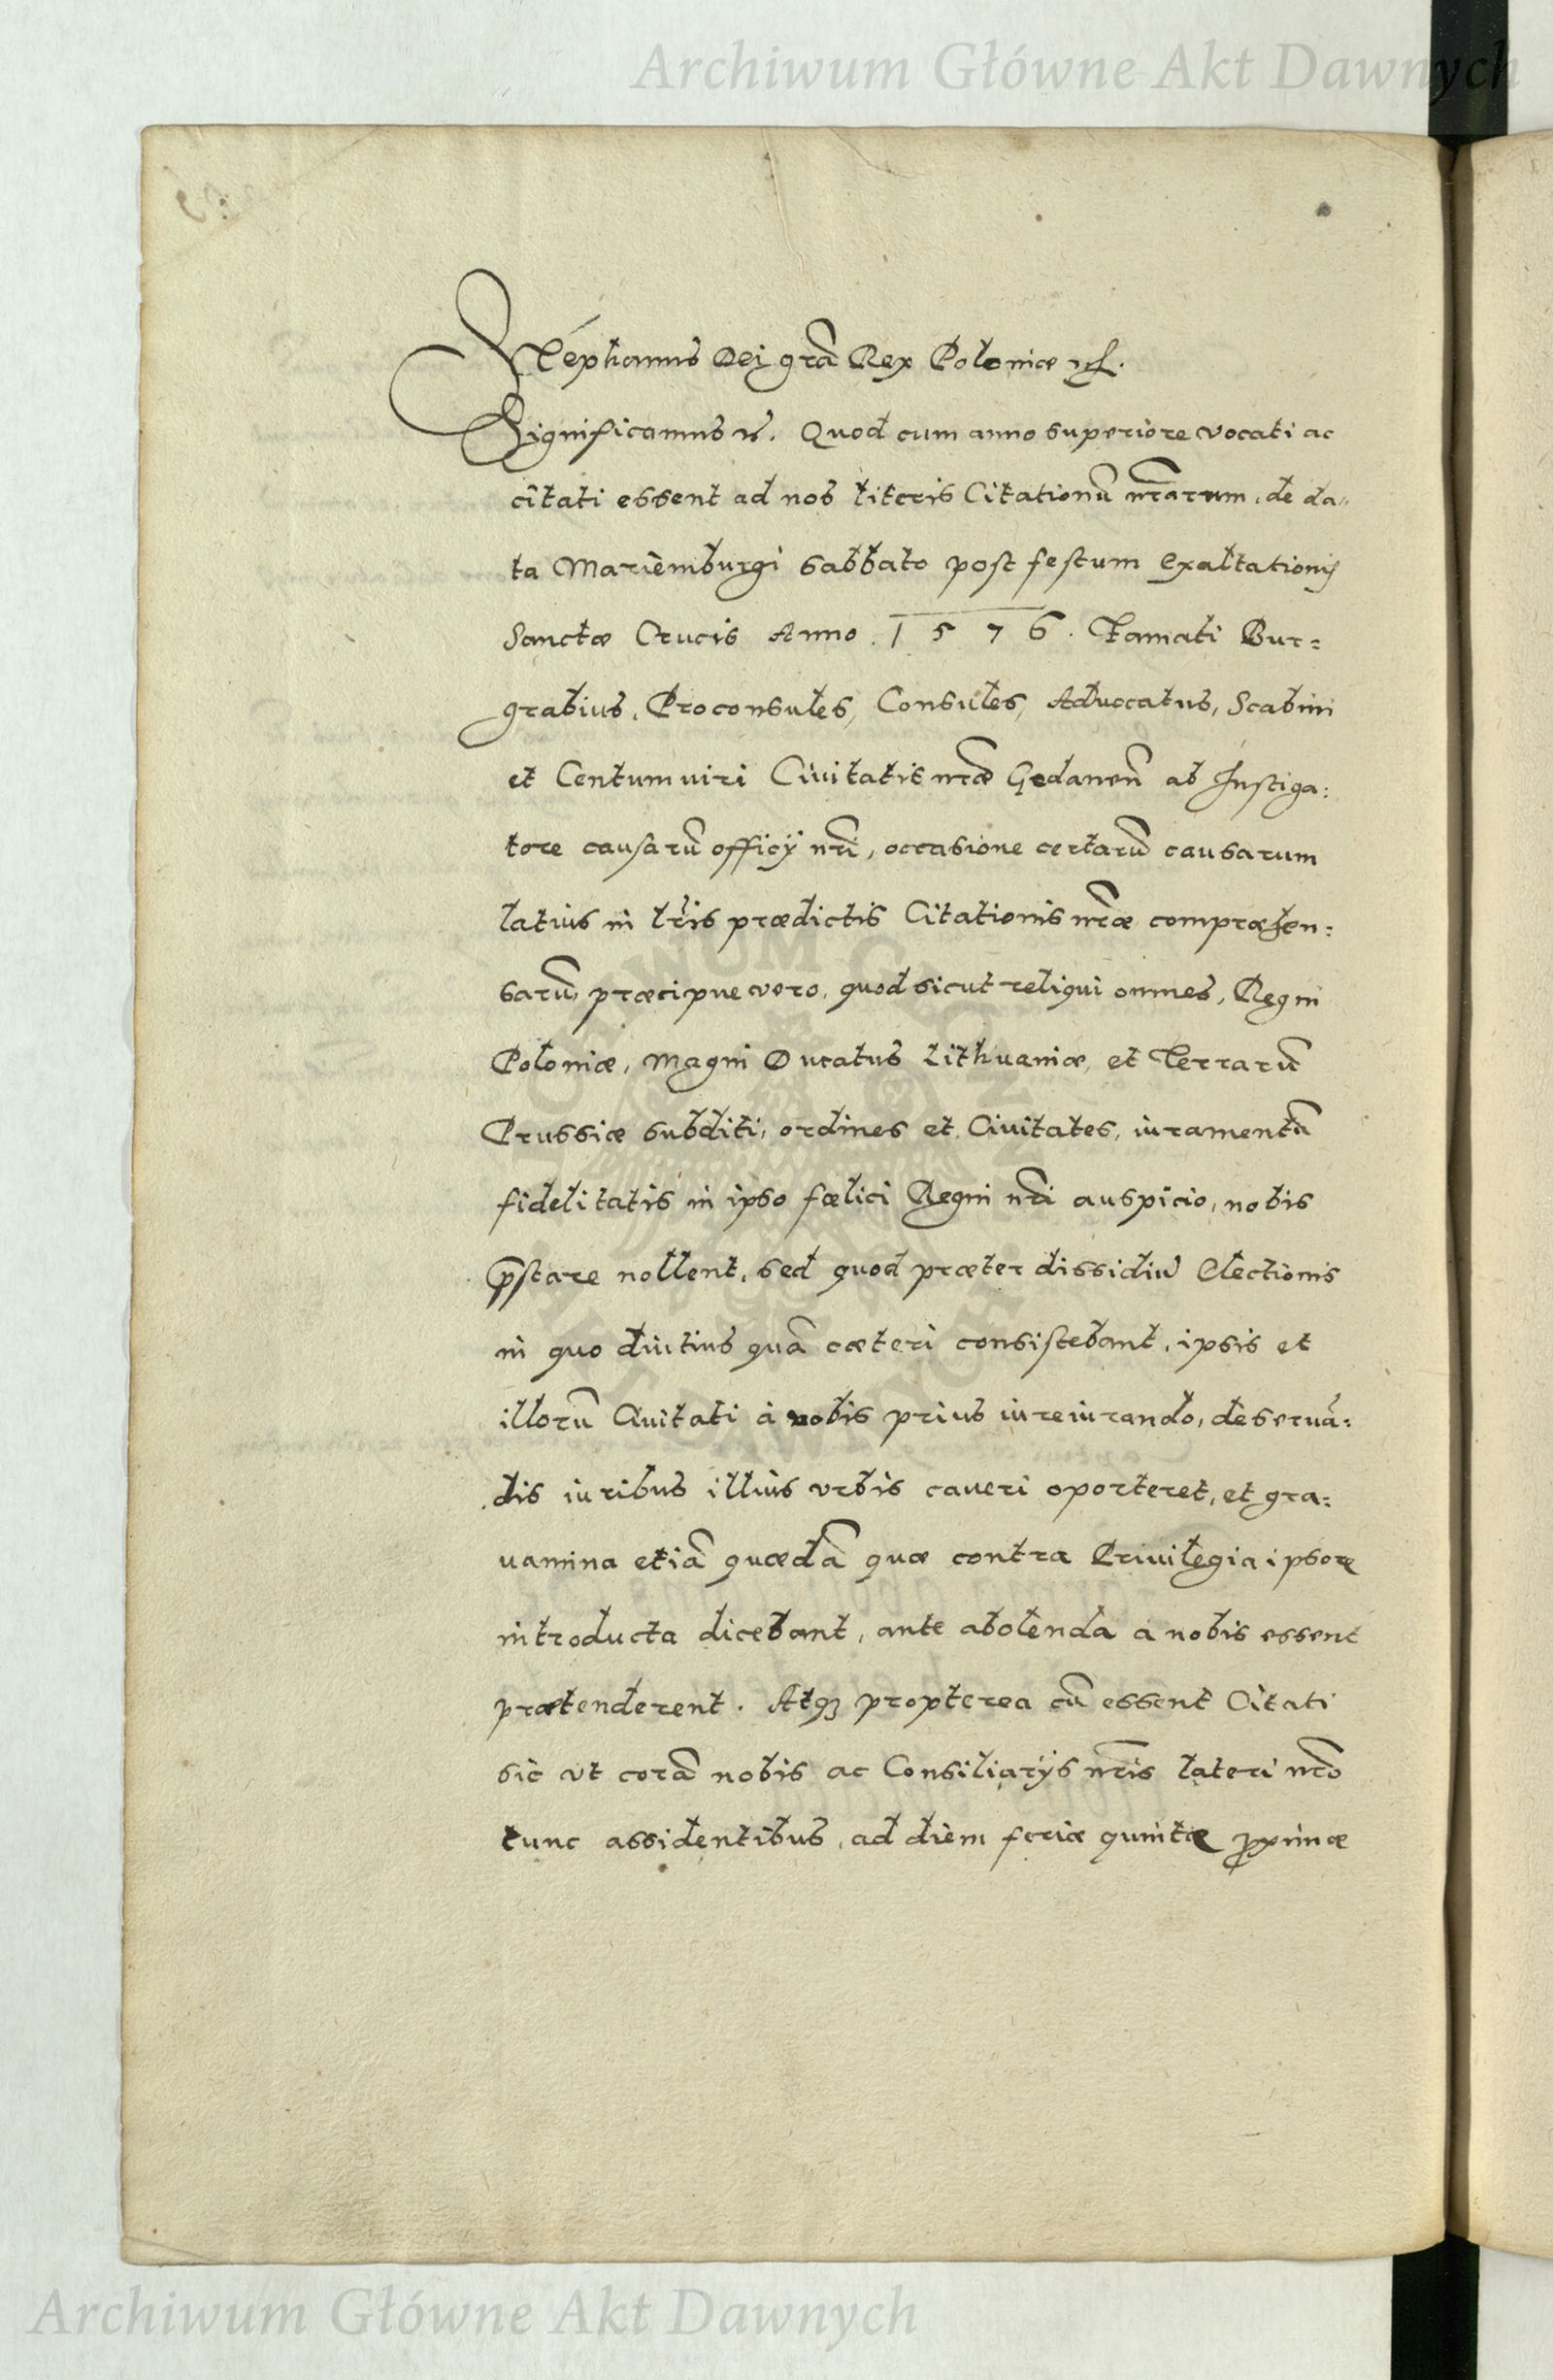 Archiwum Główne Akt Dawnych
Stephanus Dei gra͂ Rex Poloniæ
Significamus Quod cum anno superiore vocati ac
citati essent ad nos literis Citationu͂ nr͂arum, de da„
ta Mariemburgi sabbato post festum Exaltationis
Sanctæ Crucis Anno . 1576 . Famati Bur=
grabius, Proconsules, Consules, Advocatus, Scabini
et Centumuiri Ciuitatis nr͂æ Gedanen͂ ab Instiga:
tore causaru͂ officij nr͂i, occasione certaru͂ causarum
latius in lr͂is prædictis Citationis nr͂æ compræhen:
saru͂, præcipue vero, quod sicut reliqui omnes, Regni
Poloniæ, Magni Ducatus Lithuaniæ, et Terraru͂
Prussiæ subditi, ordines et Ciuitates, iuramentu͂
fidelitatis in ipso fælici Regni nr͂i auspicio, nobis
p͂stare nollent, sed quod præter dissidiu͂ Electionis
in quo diutius qua͂ cæteri consistebant, ipsis et
illoru͂ Ciuitati à nobis prius iureiurando, de serua͂:
dis iuribus illius vrbis caueri oporteret, et gra:
uamina etia͂ quæda͂ quæ contra Priuilegia ipsorꝝ
introducta dicebant, ante abolenda a nobis essent
prætenderent. Atqꝫ propterea cu͂ essent Citati
sic vt cora͂ nobis ac Consiliarijs nr͂is lateri nr͂o
tunc assidentibus, ad diem feriæ quintæ ꝓximæ
Archiwum Główne Akt Dawnych